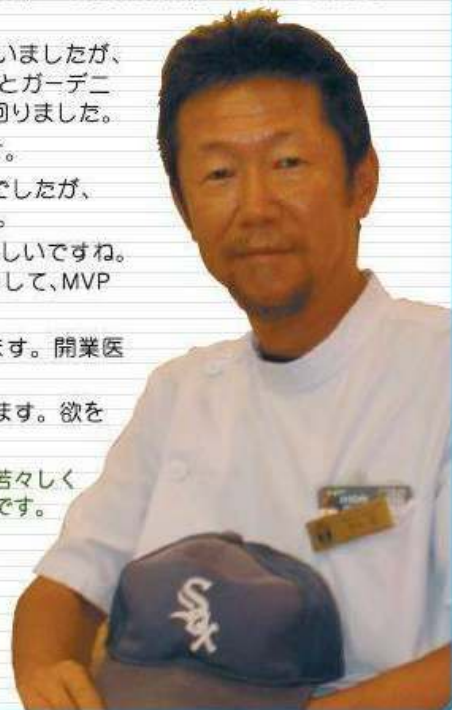 いましたが、
とガーデニ
回りました。
す。
でしたが、
。
しいですね。
して、MVP
ます。開業医
ます。欲を
若々しく
です。
Sox